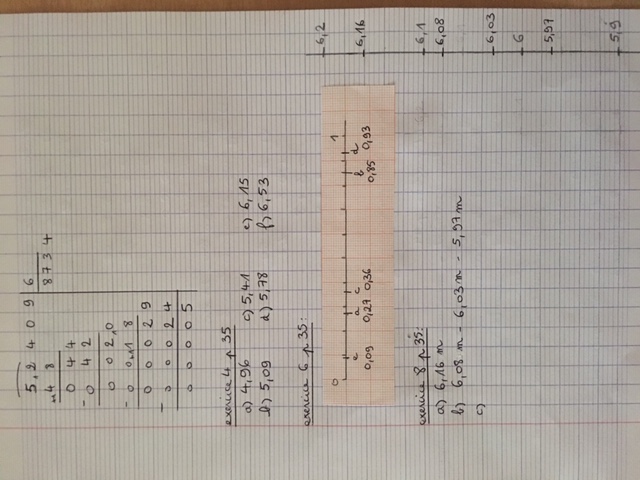 5,2 4 0 9 6
- 4 8 8 7 3 4
0 4 4
- 0 4 2
0 0 2,0
- 0 0 1 8
0 0 0 2 9
- 0 0 0 2 4
0 0 0 0 0 5
exercice 4 p 35
a) 4,96 c) 5,41 e) 6,15
b) 5,09 d) 5,78 f) 6,53
exercice 6 p 35:
0 1
e a c b d
0,09 0,27 0,36 0,85 0,93
exercice 8 p 35:
a) 6,16 m
b) 6,08 m - 6,03 m - 5,97 m
c)
6,2
6,16
6,1
6,08
6,03
6
5,97
5,9